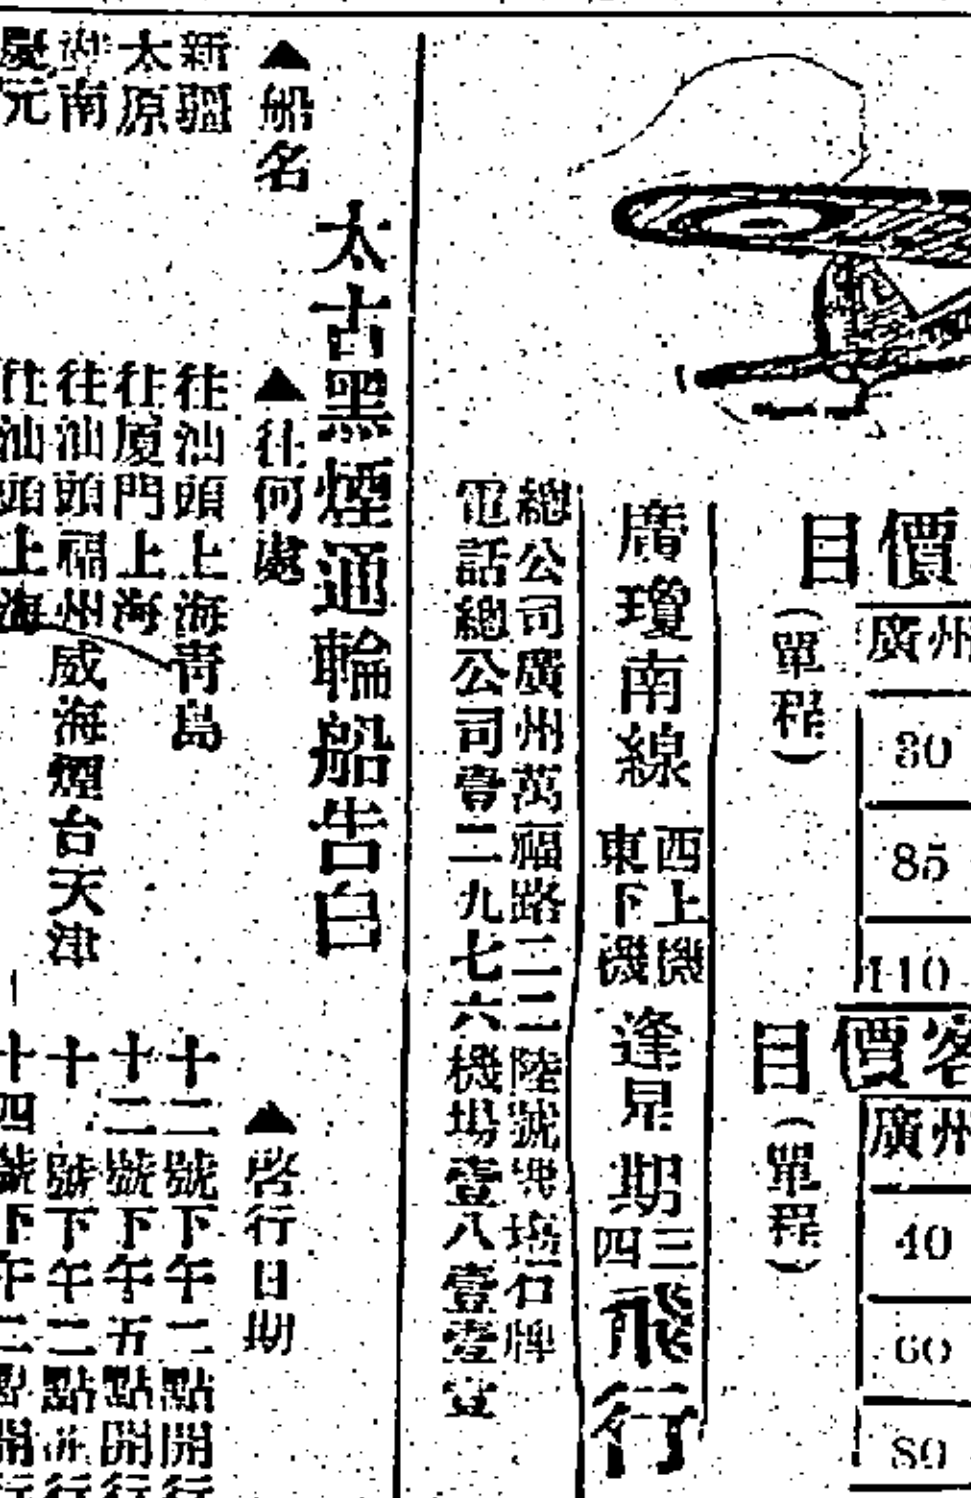 價目
(單程)
廣州
80
85
110
客價目
(單程)
廣州
40
60
80
廣瓊南線
西上機
東下機
逢星期
三
四
飛行
總公司廣州萬福路二二陸號機塲石牌
電話總公司壹二九七六機塲壹八壹壹壹
太古黑煙通輪船告白
▲船名 ▲往何處 ▲啓行日期
新疆 往汕頭上海青島 十二號下午二點開行
太原 往厦門上海 十二號下午五點開行
湖南 往汕頭福州威海煙台天津 十 號下午二點開行
慶元 往汕頭上海 十四號下午二點開行